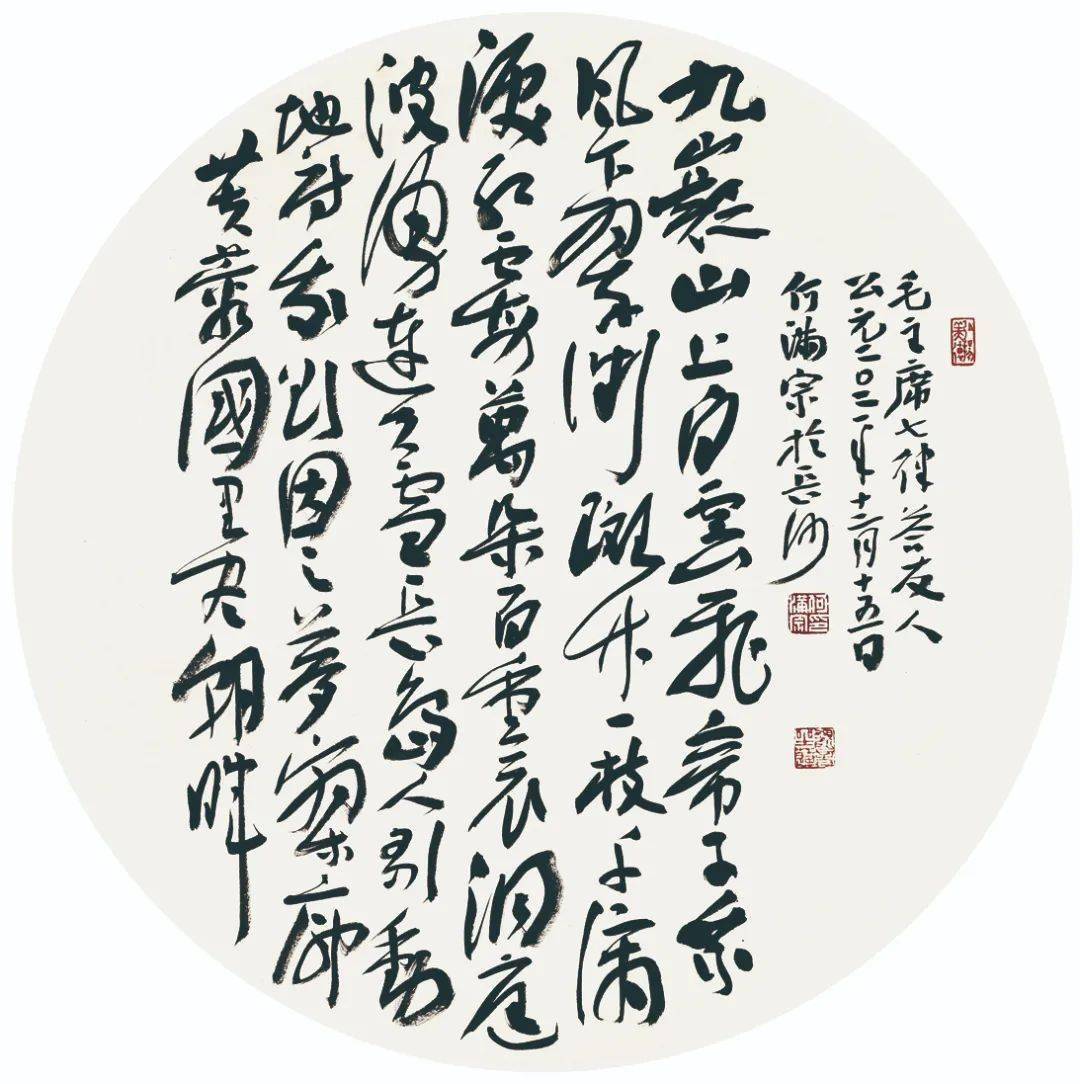 毛主席七律答友人
公元二〇二一年十二月十五日
何滿宗於長沙
九嶷山上白雲飛帝子乘
風下翠微斑竹一枝千滴
淚紅霞萬朵百重衣洞庭
波涌連天雪長島人歌動
地詩我欲因之夢寥廓
芙蓉國里盡朝暉